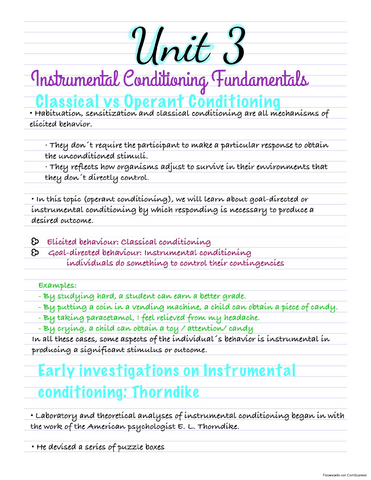 Unit 3
Instrumental Conditioning Fundamentals
Classical vs Operant Conditioning
• Habituation, sensitization and classical conditioning are all mechanisms of
elicited behavior.
· They don´t require the participant to make a particular response to obtain
the unconditioned stimuli.
· They reflects how organisms adjust to survive in their environments that
they don´t directly control.
• In this topic (operant conditioning), we will learn about goal-directed or
instrumental conditioning by which responding is necessary to produce a
desired outcome.
Elicited behaviour: Classical conditioning
Goal-directed behaviour: Instrumental conditioning
individuals do something to control their contingencies
Examples:
- By studying hard, a student can earn a better grade.
- By putting a coin in a vending machine, a child can obtain a piece of candy.
- By taking paracetamol, I feel relieved from my headache.
- By crying, a child can obtain a toy / attention/ candy
In all these cases, some aspects of the individual´s behavior is instrumental in
producing a significant stimulus or outcome.
Early investigations on Instrumental
conditioning: Thorndike
• Laboratory and theoretical analyses of instrumental conditioning began in with
the work of the American psychologist E. L. Thorndike.
• He devised a series of puzzle boxes
Escaneado con CamScanner